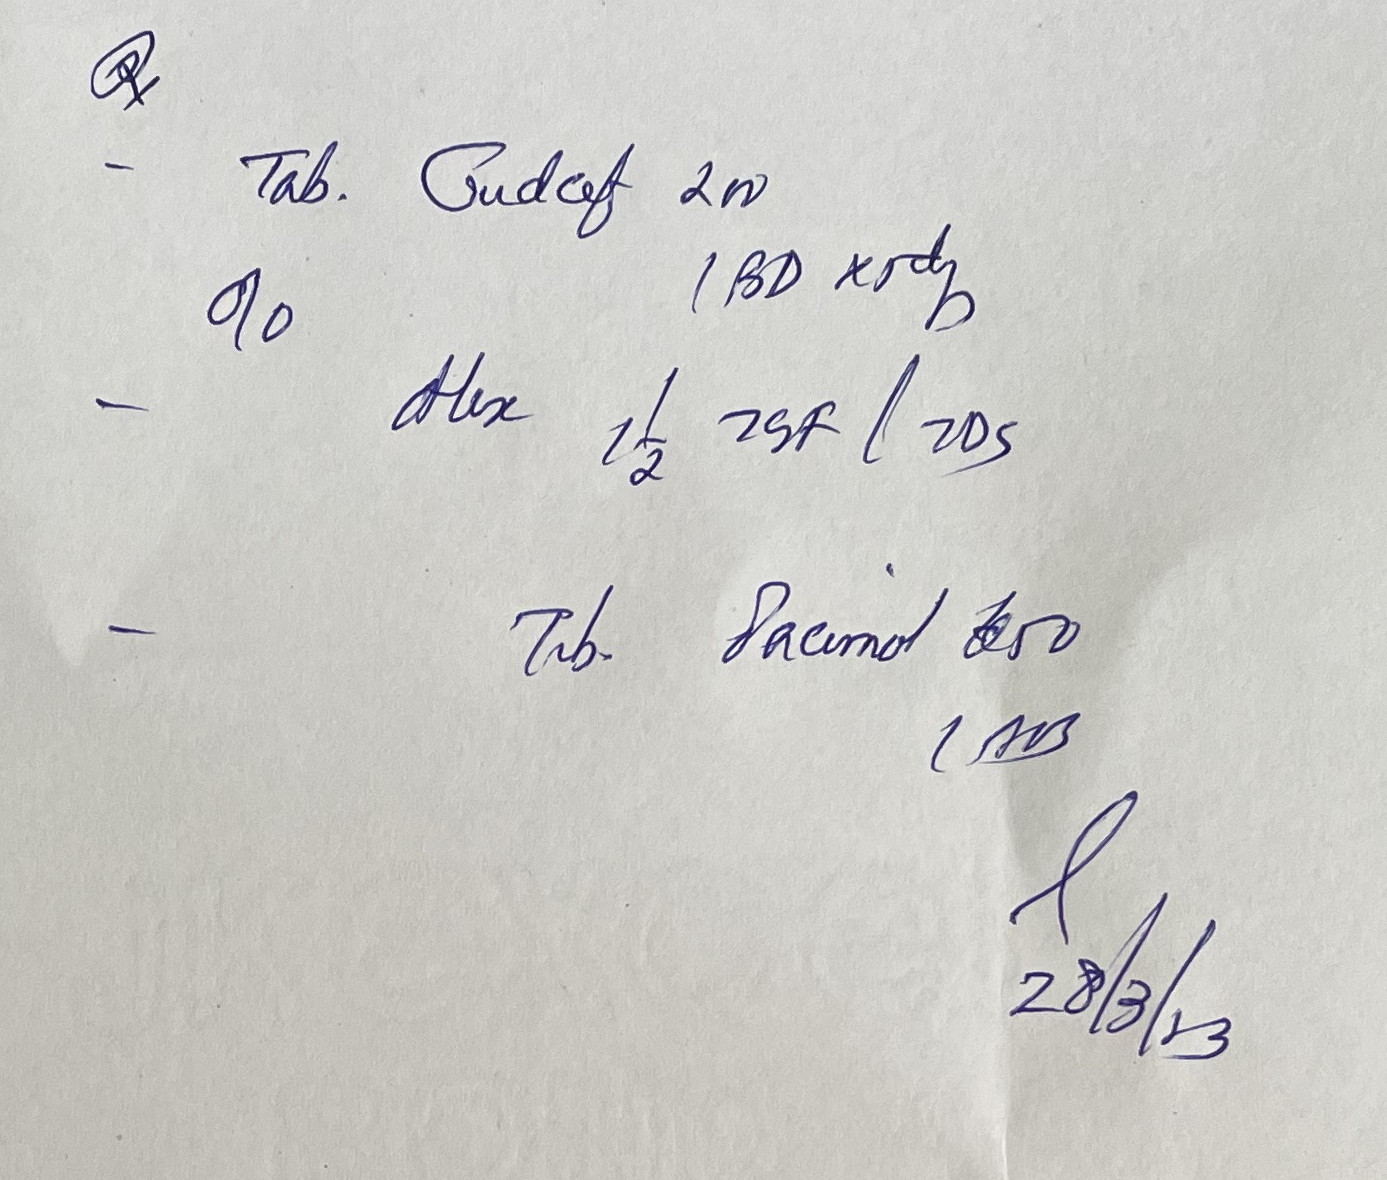 Rx
- Tab. Gudcef 200
1 BD x 5 dy
- Alex 1 1/2 TSF / TDS
- Tab. Pacimol 650
28/3/23